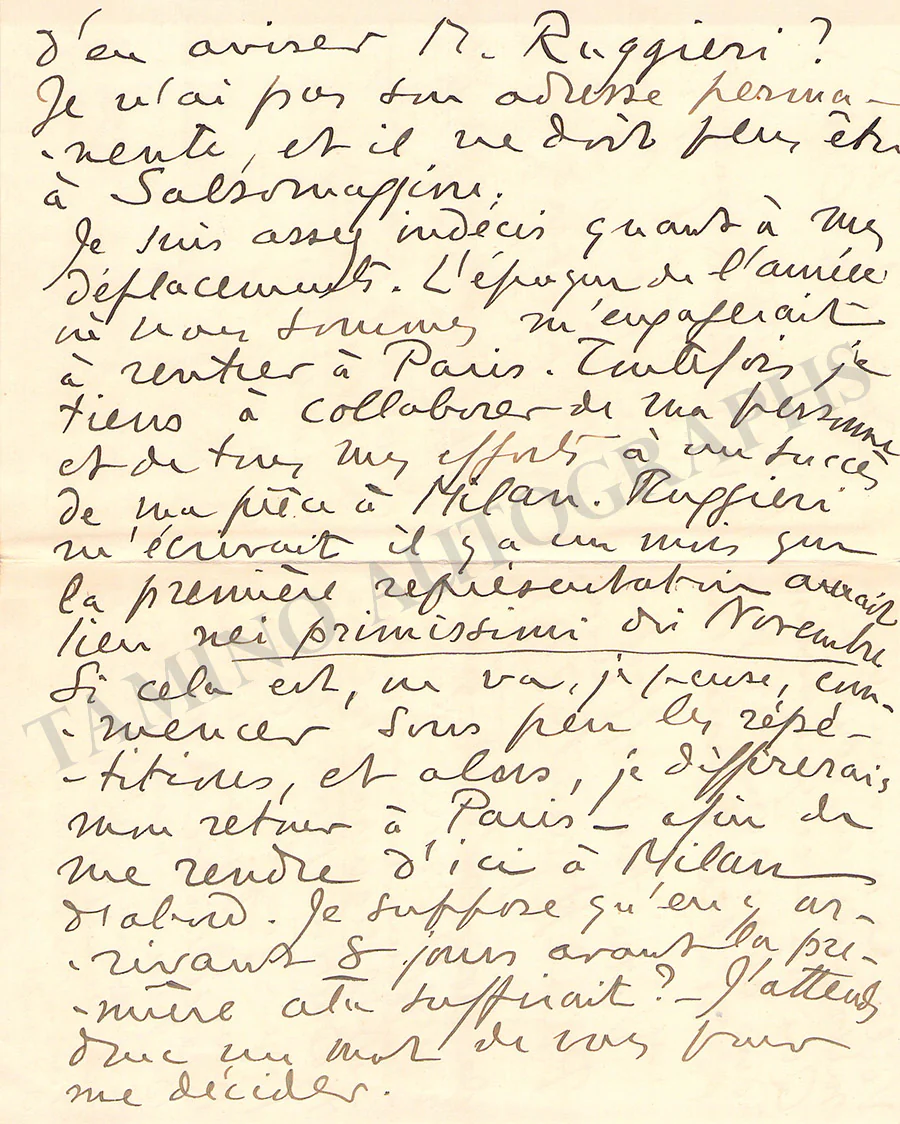 d'en aviser M. Ruggieri?
Je n'ai pas son adresse perma-
-nente, et il ne doit plus être
à Salsomaggiore.
Je suis assez indécis quant à mes
déplacements. L'époque de l'année
où nous sommes m'engagerait
à rentrer à Paris. Toutefois je
tiens à collaborer de ma personne
et de tous mes efforts à un succès
de ma pièce à Milan. Ruggieri
m'écrivait il y a un mois que
la première représentation aurait
lieu nei primissimi di Novembre
Si cela est, on va, je pense, com-
-mencer sous peu les répé-
-titions, et alors, je différerais
mon retour à Paris - afin de
me rendre d'ici à Milan
d'abord. Je suppose qu'en y ar-
-rivant 8 jours avant la pre-
-mière cela suffirait? - J'attends
donc un mot de vous pour
me décider.
TAMINO AUTOGRAPHS